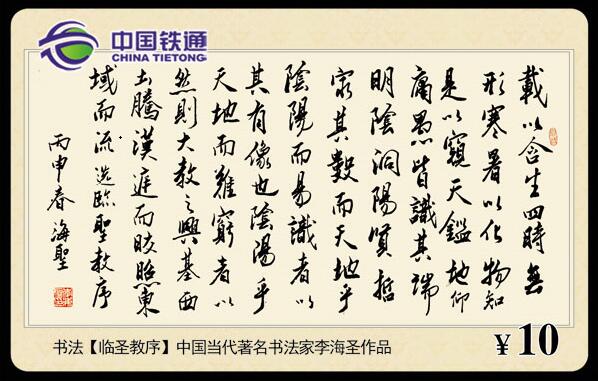 中国铁通
CHINA TIETONG
載以含生四時無
形寒暑以化物知
是以窺天鑑地仰
庸愚皆識其端
明陰洞陽賢哲
其數而天地乎
陰陽而易識者以
其有像也陰陽乎
天地而難窮者以
然則大教之興基西
土騰漢庭而皎照東
域而流选临聖教序
丙申春海聖
书法【临圣教序】中国当代著名书法家李海圣作品
¥10